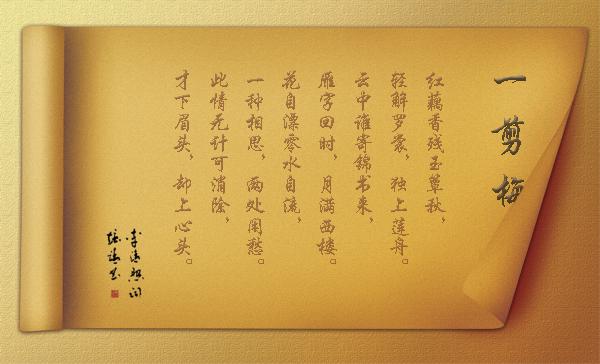 一剪梅
红藕香残玉簟秋，
轻解罗裳，独上莲舟。
云中谁寄锦书来，
雁字回时，月满西楼。
花自漂零水自流，
一种相思，两处闲愁。
此情无计可消除，
才下眉头，却上心头。